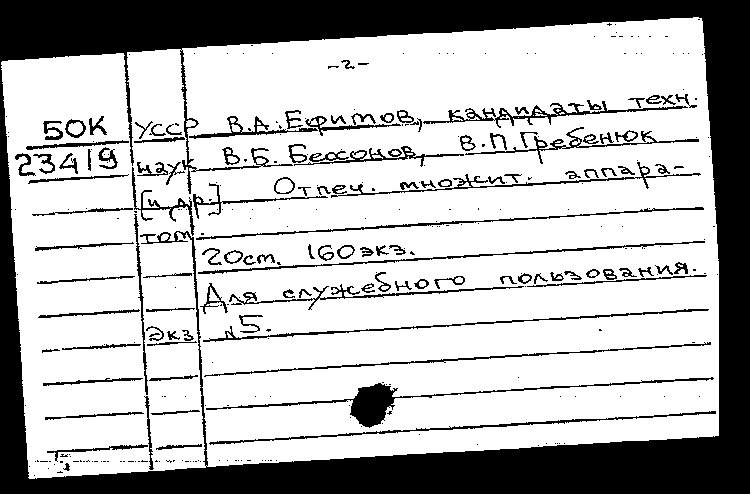 -2-
БОК УССР В.А. Ефимов, кандидаты техн.
23419 наук В.Б. Бессонов, В.П. Гребенюк
[и др.] Отпеч. множит. аппара-
том.
20 ст. 160 экз.
Для служебного пользования.
Экз №5.